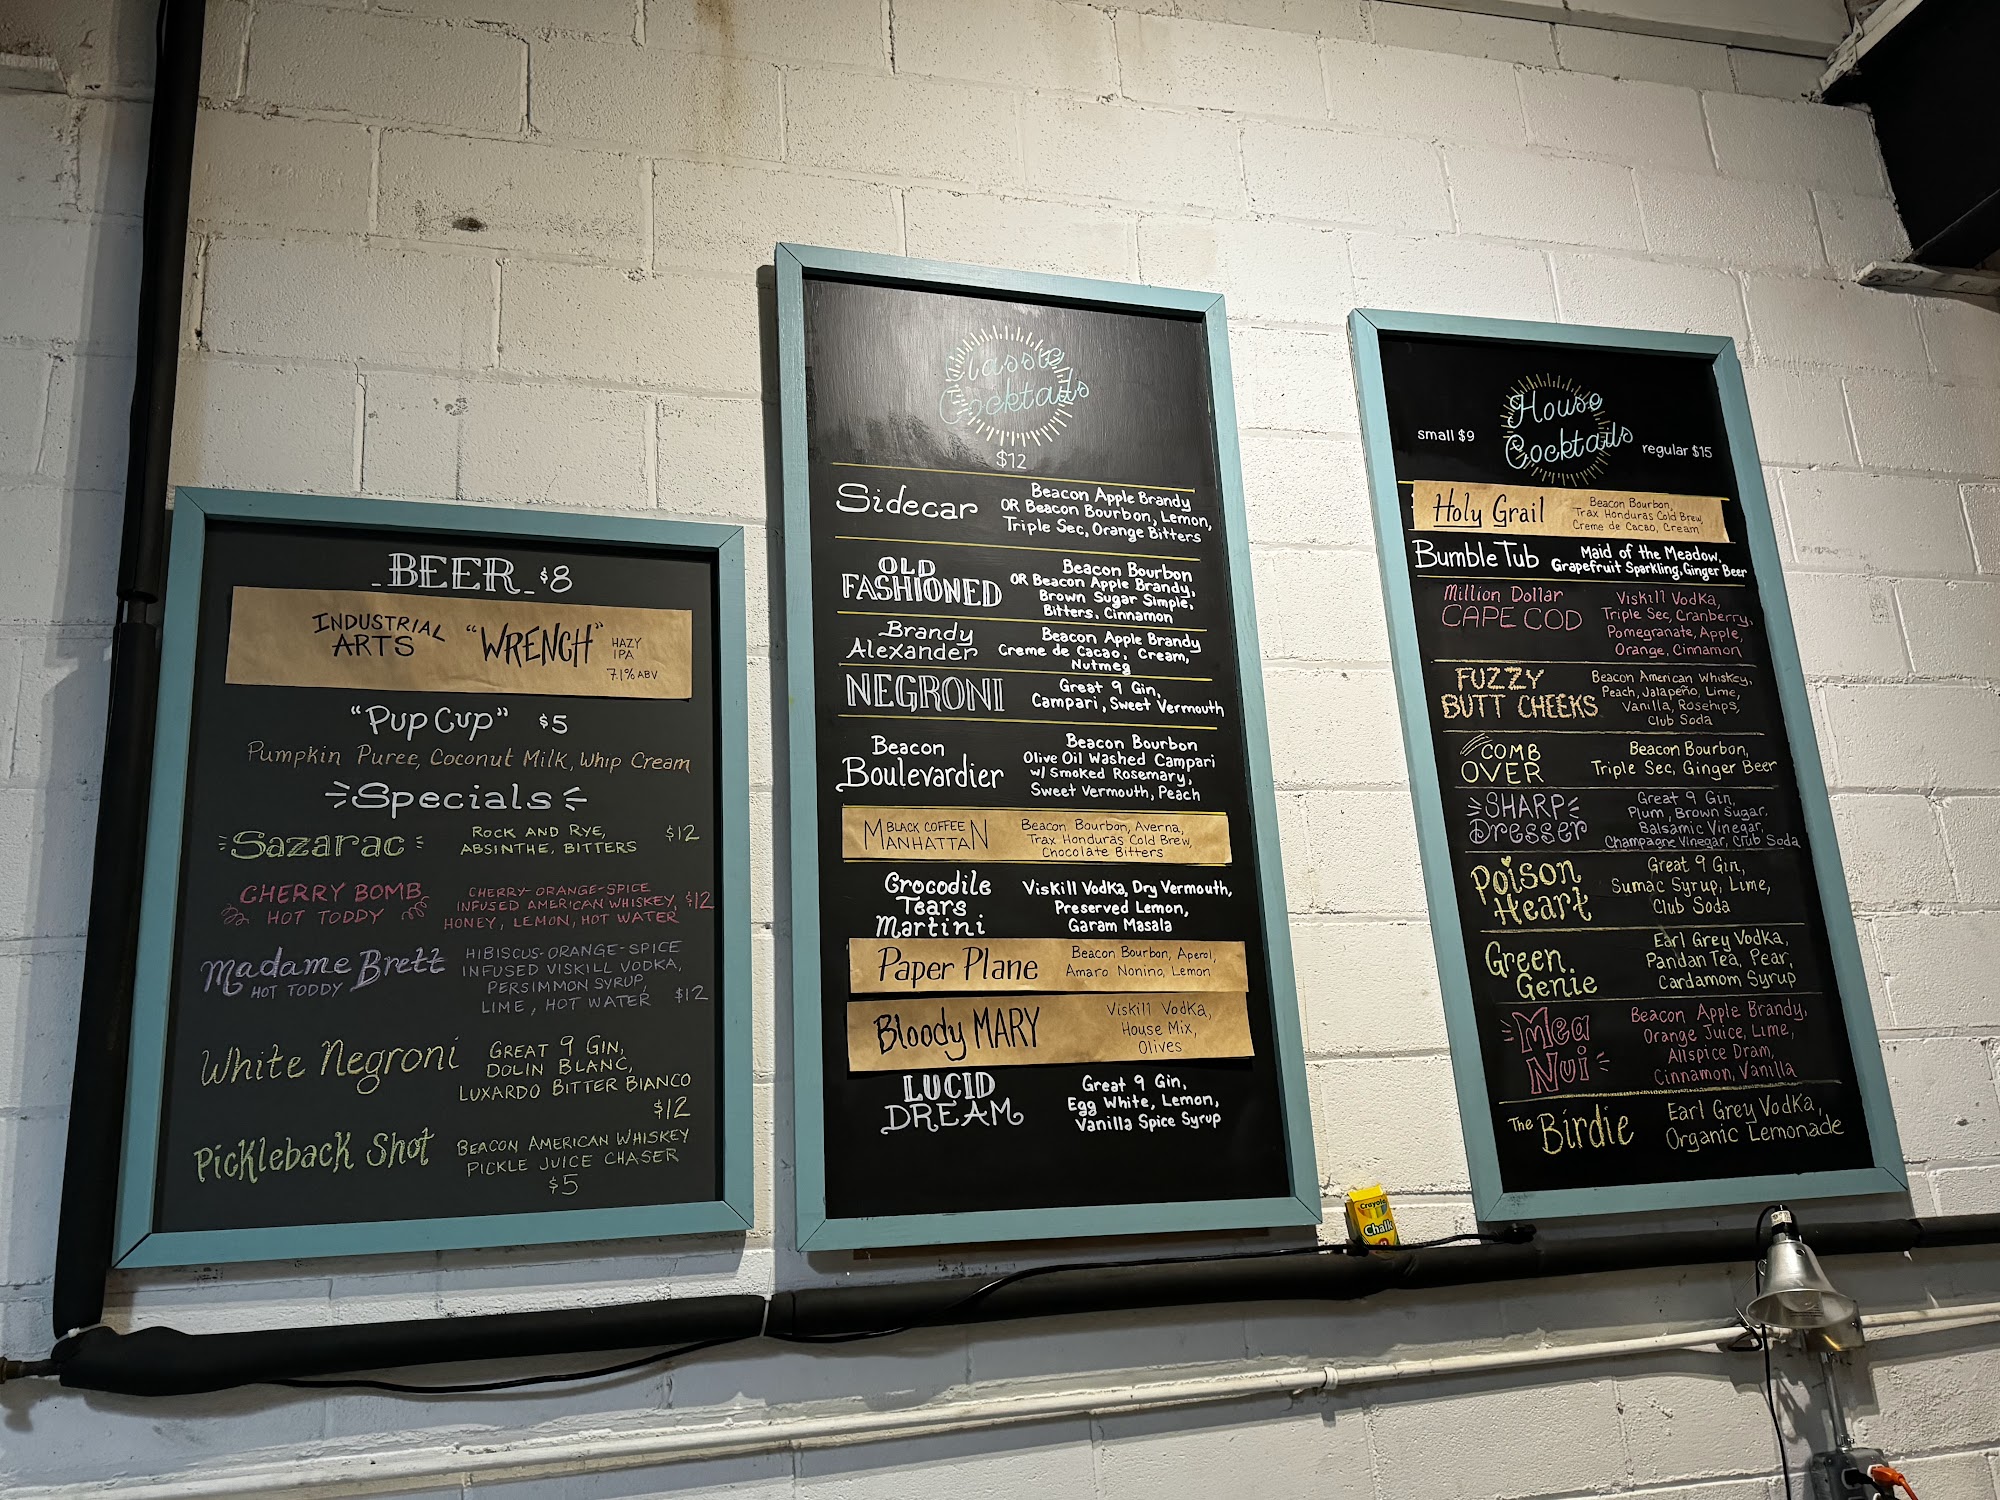 BEER $8
INDUSTRIAL
ARTS
"WRENCH"
HAZY
IPA
7.1% ABV
"Pup Cup" $5
Pumpkin Puree, Coconut Milk, Whip Cream
Specials
Sazarac
ROCK AND RYE, $12
ABSINTHE, BITTERS
CHERRY BOMB
HOT TODDY
CHERRY-ORANGE-SPICE
INFUSED AMERICAN WHISKEY, $12
HONEY, LEMON, HOT WATER
Madame Brett
HOT TODDY
HIBISCUS-ORANGE-SPICE
INFUSED VISKILL VODKA,
PERSIMMON SYRUP,
LIME, HOT WATER $12
White Negroni
GREAT 9 GIN,
DOLIN BLANC,
LUXARDO BITTER BIANCO
$12
Pickleback Shot
BEACON AMERICAN WHISKEY
PICKLE JUICE CHASER
$5
Classic
Cocktails
$12
Sidecar
Beacon Apple Brandy
OR Beacon Bourbon, Lemon,
Triple Sec, Orange Bitters
OLD
FASHIONED
Beacon Bourbon
OR Beacon Apple Brandy,
Brown Sugar Simple,
Bitters, Cinnamon
Brandy
Alexander
Beacon Apple Brandy
Creme de Cacao, Cream,
Nutmeg
NEGRONI
Great 9 Gin,
Campari, Sweet Vermouth
Beacon
Boulevardier
Beacon Bourbon
Olive Oil Washed Campari
w/ Smoked Rosemary,
Sweet Vermouth, Peach
BLACK COFFEE
MANHATTAN
Beacon Bourbon, Averna,
Trax Honduras Cold Brew,
Chocolate Bitters
Crocodile
Tears
Martini
Viskill Vodka, Dry Vermouth,
Preserved Lemon,
Garam Masala
Paper Plane
Beacon Bourbon, Aperol,
Amaro Nonino, Lemon
Bloody MARY
Viskill Vodka,
House Mix,
Olives
LUCID
DREAM
Great 9 Gin,
Egg White, Lemon,
Vanilla Spice Syrup
House
Cocktails
small $9
regular $15
Holy Grail
Beacon Bourbon,
Trax Honduras Cold Brew,
Creme de Cacao, Cream
Bumble Tub
Maid of the Meadow,
Grapefruit Sparkling, Ginger Beer
Million Dollar
CAPE COD
Viskill Vodka,
Triple Sec, Cranberry,
Pomegranate, Apple,
Orange, Cinnamon
FUZZY
BUTT CHEEKS
Beacon American Whiskey,
Peach, Jalapeño, Lime,
Vanilla, Rosehips,
Club Soda
COMB
OVER
Beacon Bourbon,
Triple Sec, Ginger Beer
SHARP
Dresser
Great 9 Gin,
Plum, Brown Sugar,
Balsamic Vinegar,
Champagne Vinegar, Club Soda
Poison
Heart
Great 9 Gin,
Sumac Syrup, Lime,
Club Soda
Green
Genie
Earl Grey Vodka,
Pandan Tea, Pear,
Cardamom Syrup
Mea
Nui
Beacon Apple Brandy,
Orange Juice, Lime,
Allspice Dram,
Cinnamon, Vanilla
The Birdie
Earl Grey Vodka,
Organic Lemonade
Crayola
Chalk